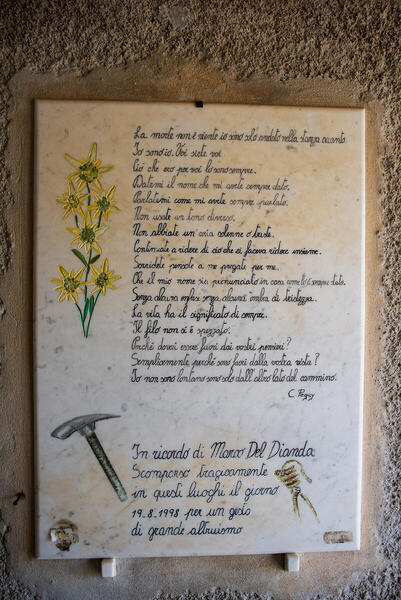 La morte non è niente io sono solo andato nella stanza accanto.
Io sono io. Voi siete voi
Ciò che ero per voi lo sono sempre.
Datemi il nome che mi avete sempre dato.
Parlatemi come mi avete sempre parlato.
Non usate un tono diverso.
Non abbiate un'aria solenne o triste.
Continuate a ridere di ciò che ci faceva ridere insieme.
Sorridete pensate a me pregate per me.
Che il mio nome sia pronunciato in casa come lo è sempre stato.
Senza alcuna enfasi senza alcuna ombra di tristezza.
La vita ha il significato di sempre.
Il filo non si è spezzato.
Perchè dovrei essere fuori dai vostri pensieri?
Semplicemente perchè sono fuori dalla vostra vista?
Io non sono lontano sono solo dall'altro lato del cammino.
C. Péguy
In ricordo di Marco Del Dianda
Scomparso tragicamente
in questi luoghi il giorno
19-8-1998 per un gesto
di grande altruismo